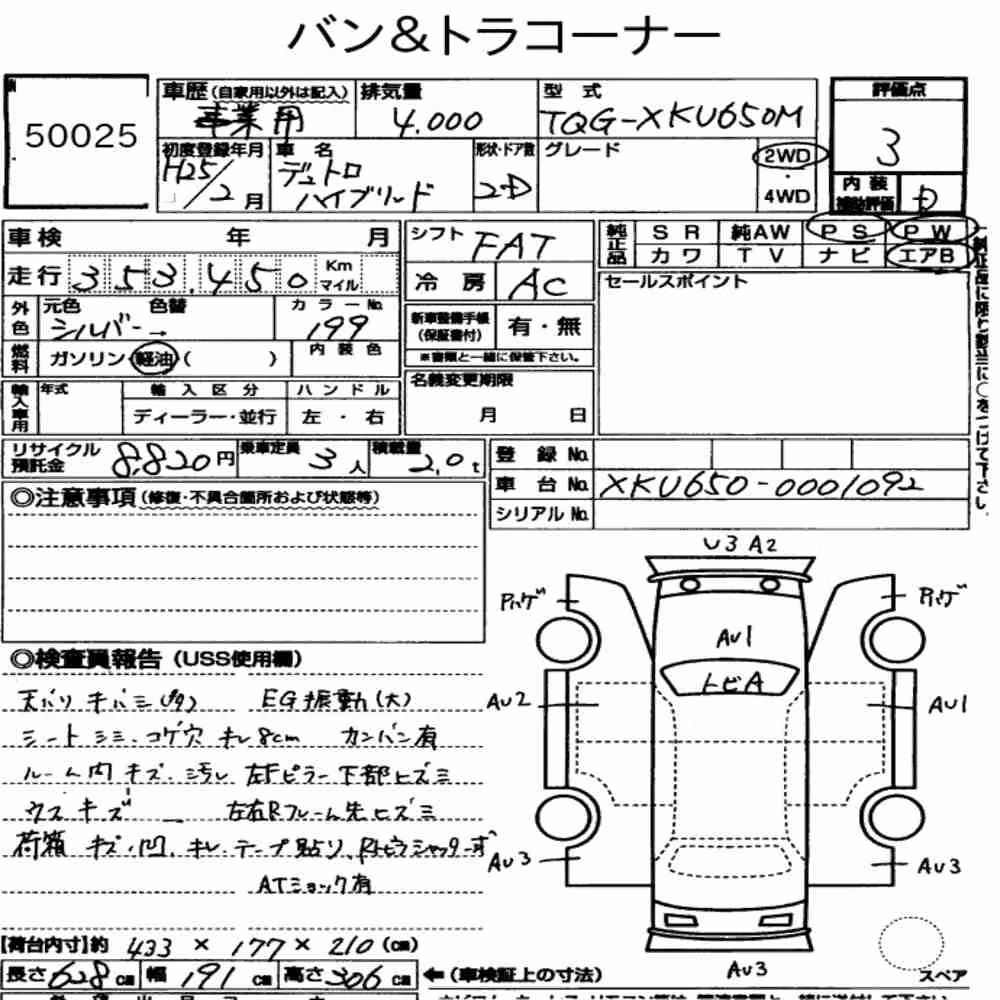 バン&トラコーナー
50025
車歴(自家用以外は記入) 排気量 型式 評価点
事業用 4.000 TQG-XKU650M 3
初度登録年月 車名 形状・ドア数 グレード 2WD
H25/2月 デュトロ ハイブリード 2-D ・ 4WD
内装補助評価 D
車検 年 月 シフト FAT 純正品 SR 純AW PS PW
カワ TV ナビ エアB
走行 353.450 Km マイル 冷房 AC セールスポイント
外色 元色 色替 カラーNo.
シルバー→ 199 新車整備手帳(保証書付) 有・無
燃料 ガソリン・軽油・( ) 内装色 ※書類と一緒に保管下さい。
輸入車用 年式 輸入区分 ハンドル 名義変更期限
ディーラー・並行 左・右 月 日
リサイクル預託金 8,820円 乗車定員 3人 積載量 2.0t 登録No.
車台No. XKU650-0001092
シリアルNo.
◎注意事項(修復・不具合箇所および状態等)
U3 A2
AU1
トビA
AU2 AU1
AU3 AU3
AU3
スペア
◎検査員報告(USS使用欄)
EG振動(大)
シートシミ、コゲ穴 キレ8cm カンバン有
ルーム内キズ、汚レ 左Fピラー下部ヒズミ
ウスキズ 左右Rフレーム先ヒズミ
荷箱 キズ・凹、キレテープ貼り、
ATショック有
【荷台内寸】約 433 × 177 × 210 (cm)
長さ 628cm 幅 191cm 高さ 306cm ←(車検証上の寸法)